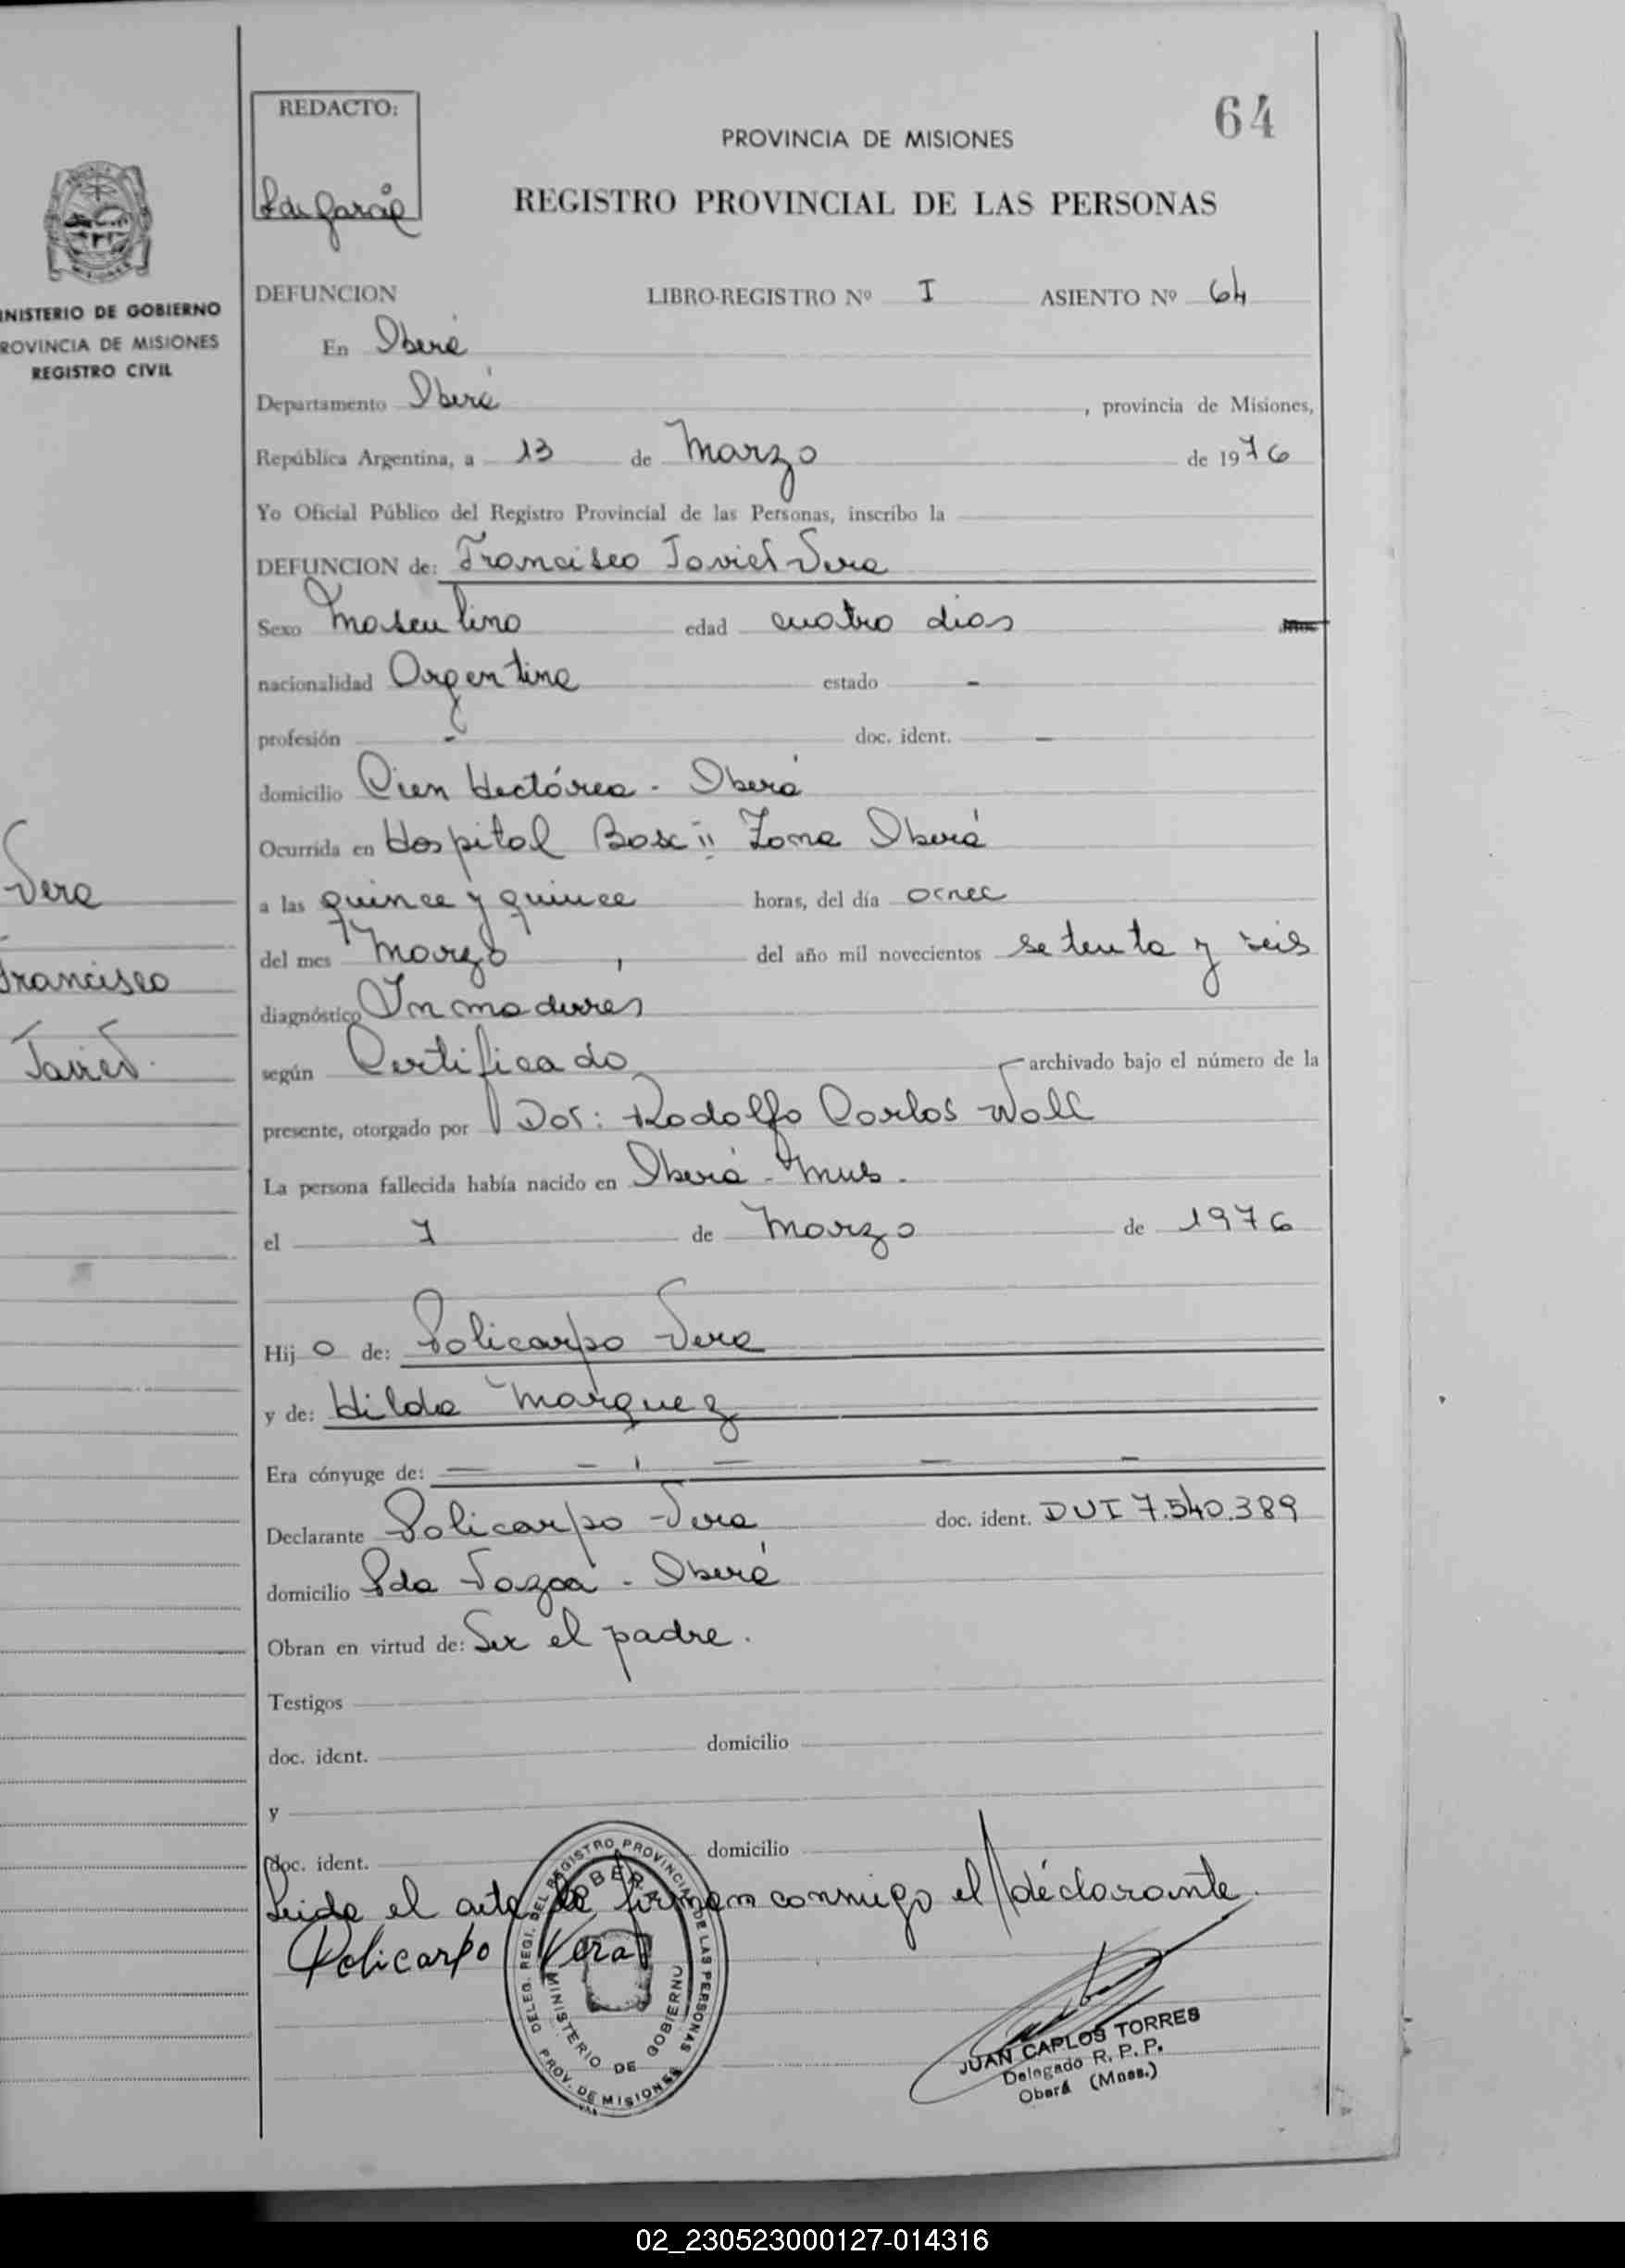 64
REDACTO:
PROVINCIA DE MISIONES
REGISTRO PROVINCIAL DE LAS PERSONAS
MISIONES
INISTERIO DE GOBIERNO
ROVINCIA DE MISIONES
REGISTRO CIVIL
DEFUNCION LIBRO-REGISTRO Nº I ASIENTO Nº 64
En Oberá
Departamento Oberá, provincia de Misiones,
República Argentina, a 13 de Marzo de 1976
Yo Oficial Público del Registro Provincial de las Personas, inscribo la
DEFUNCION de: Francisco Javier Vera
Sexo Masculino edad cuatro dias
nacionalidad Argentina estado -
profesión - doc. ident. -
domicilio Cien Hectárea - Oberá
Ocurrida en Hospital Base II Zona Oberá
Vera
a las quince y quince horas, del día once
del mes Marzo, del año mil novecientos setenta y seis
Francisco
diagnóstico Inmadures
Javier.
según Certificado archivado bajo el número de la
presente, otorgado por Dor: Rodolfo Carlos
La persona fallecida había nacido en Oberá - Mnes.
el 7 de Marzo de 1976
Hijo de: Policarpo Vera
y de: Hilda Marquez
Era cónyuge de: — - — — -
Declarante Policarpo Vera doc. ident. DUI 7.540.389
domicilio Pda - Oberá
Obran en virtud de: Ser el padre.
Testigos
doc. ident. domicilio
y
doc. ident. domicilio
Leida el acta la firman conmigo el declarante.
Policarpo Vera
DELEG. REGI. DEL REGISTRO PROVINCIAL DE LAS PERSONAS
OBERA
MINISTERIO DE GOBIERNO
PROV. DE MISIONES
JUAN CARLOS TORRES
Delegado R. P. P.
Oberá (Mnes.)
02_230523000127-014316